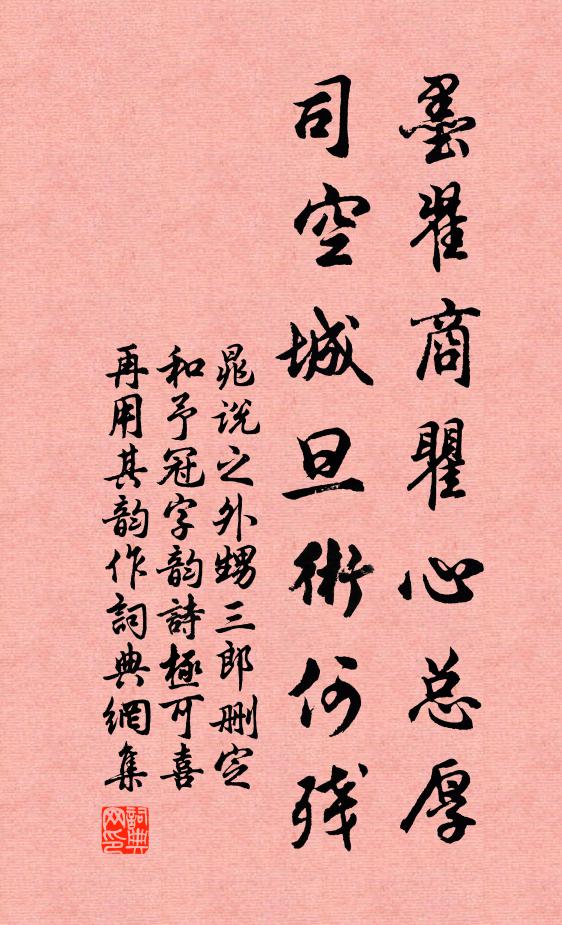 墨翟商瞿心总厚
司空城旦術何残
晁说之外甥三郎删定
和予冠字韵詩極可喜
再用其韵作詞典網集
詞典
网印